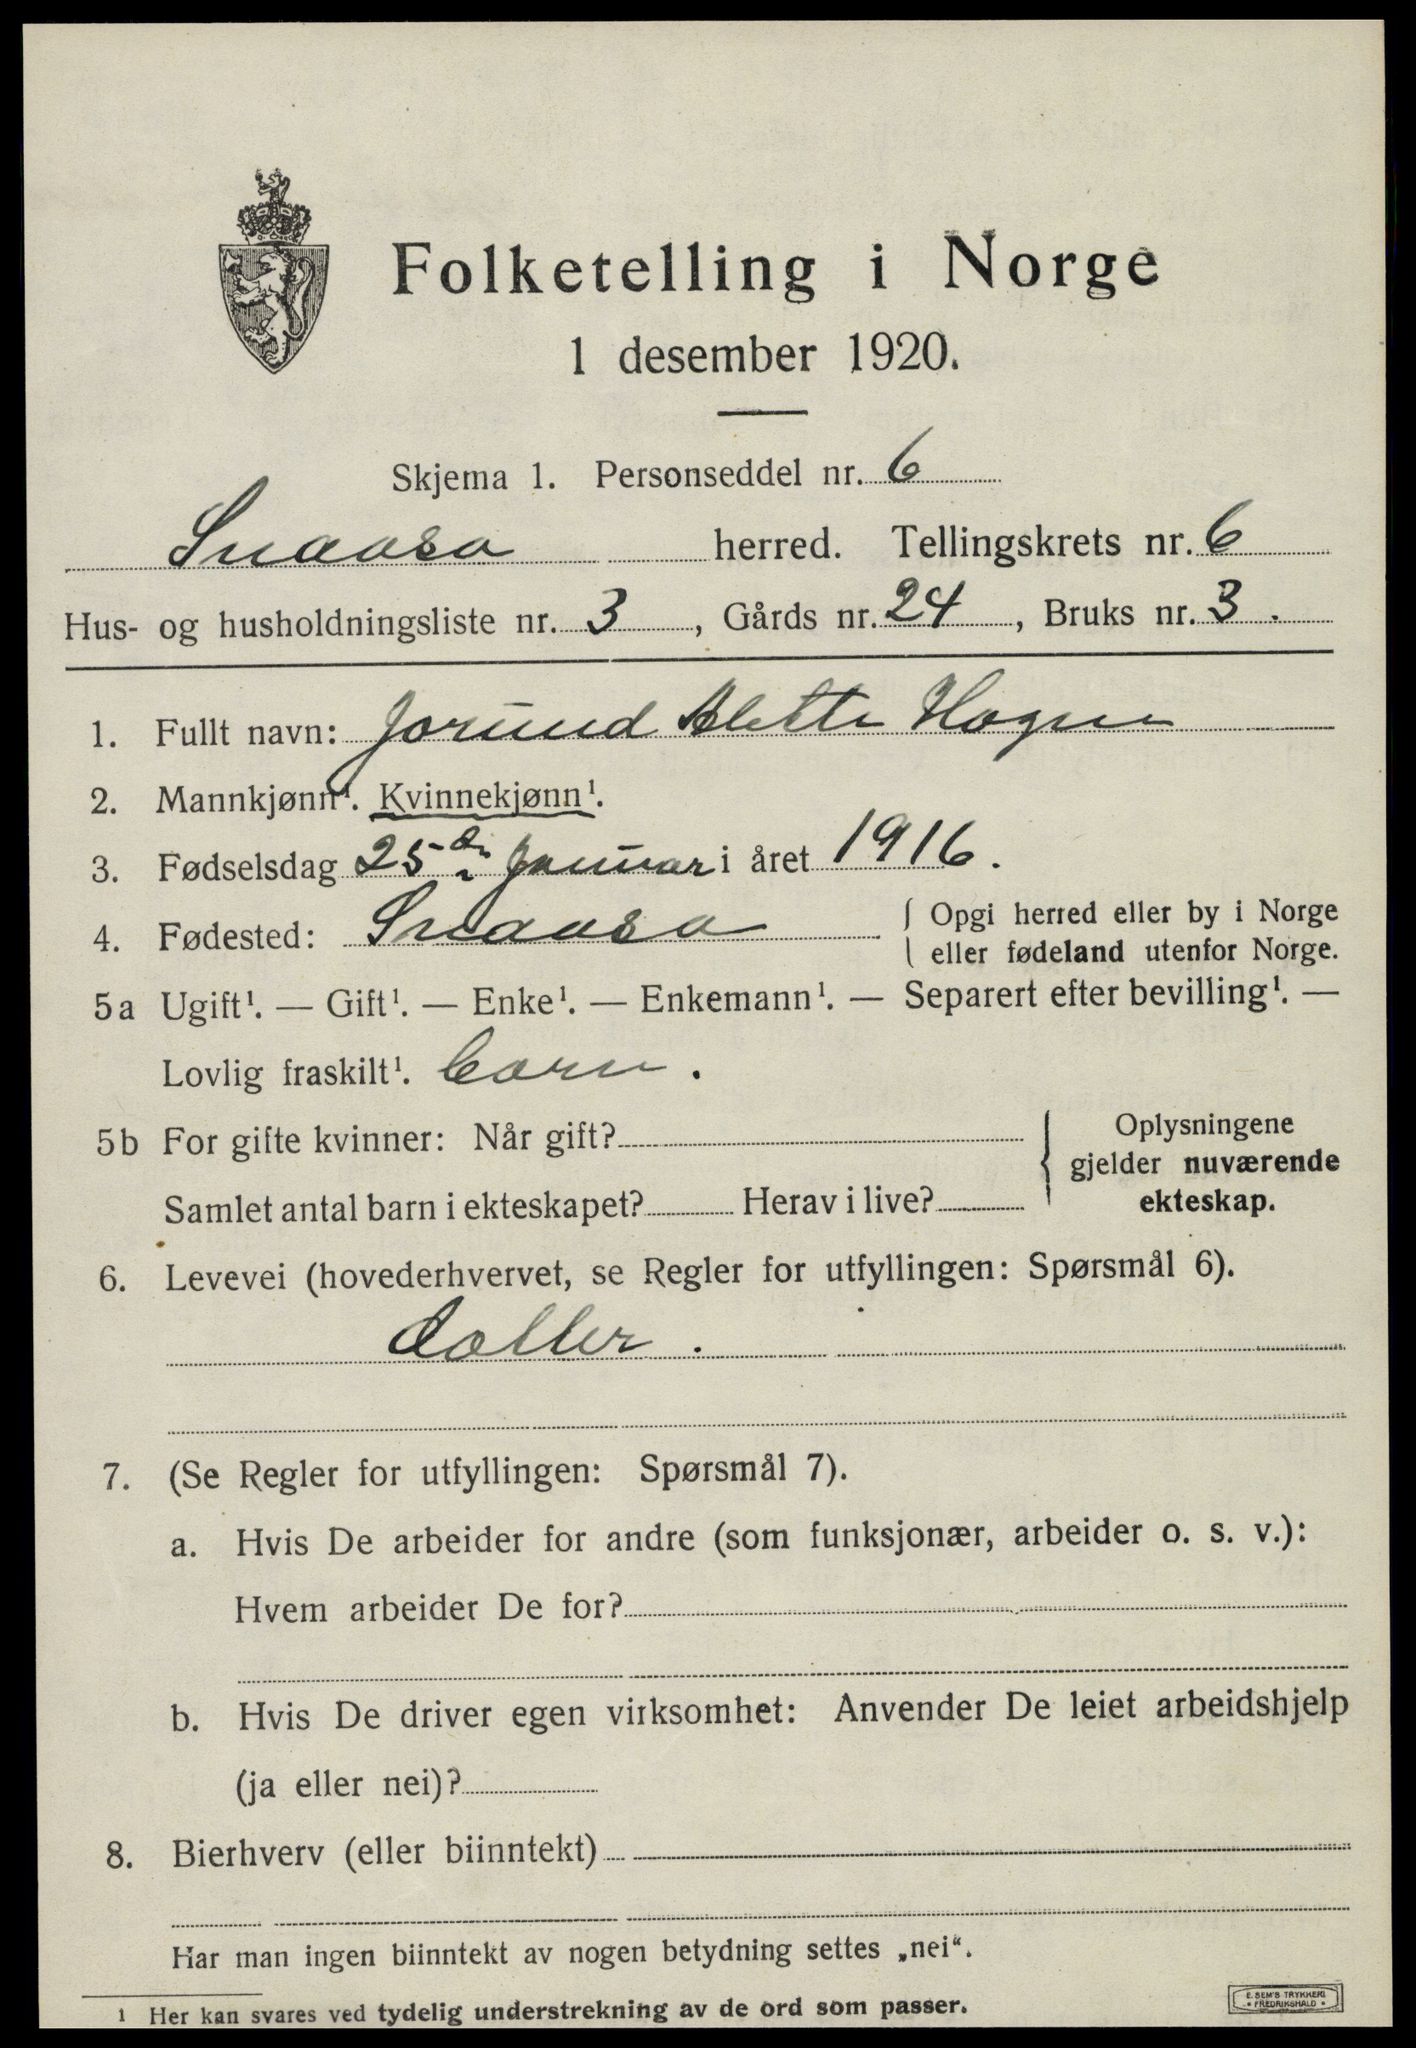 Folketelling i Norge
1 desember 1920.
Skjema 1. Personseddel nr. 6
Snaasa herred. Tellingskrets nr. 6
Hus- og husholdningsliste nr. 3, Gårds nr. 24, Bruks nr. 3.
1. Fullt navn: Jorund Alette Hagen
2. Mannkjønn¹. Kvinnekjønn¹.
3. Fødselsdag 25de Januar i året 1916.
4. Fødested: Snaasa { Opgi herred eller by i Norge
eller fødeland utenfor Norge.
5a Ugift¹. — Gift¹. — Enke¹. — Enkemann¹. — Separert efter bevilling¹. —
Lovlig fraskilt¹. barn.
5b For gifte kvinner: Når gift?
Samlet antal barn i ekteskapet? Herav i live?
Oplysningene
gjelder nuværende
ekteskap.
6. Levevei (hovederhvervet, se Regler for utfyllingen: Spørsmål 6).
datter.
7. (Se Regler for utfyllingen: Spørsmål 7).
a. Hvis De arbeider for andre (som funksjonær, arbeider o. s. v.):
Hvem arbeider De for?
b. Hvis De driver egen virksomhet: Anvender De leiet arbeidshjelp
(ja eller nei)?
8. Bierhverv (eller biinntekt)
Har man ingen biinntekt av nogen betydning settes „nei“.
1 Her kan svares ved tydelig understrekning av de ord som passer.
E. SEM'S TRYKKERI
• FREDRIKSHALD •